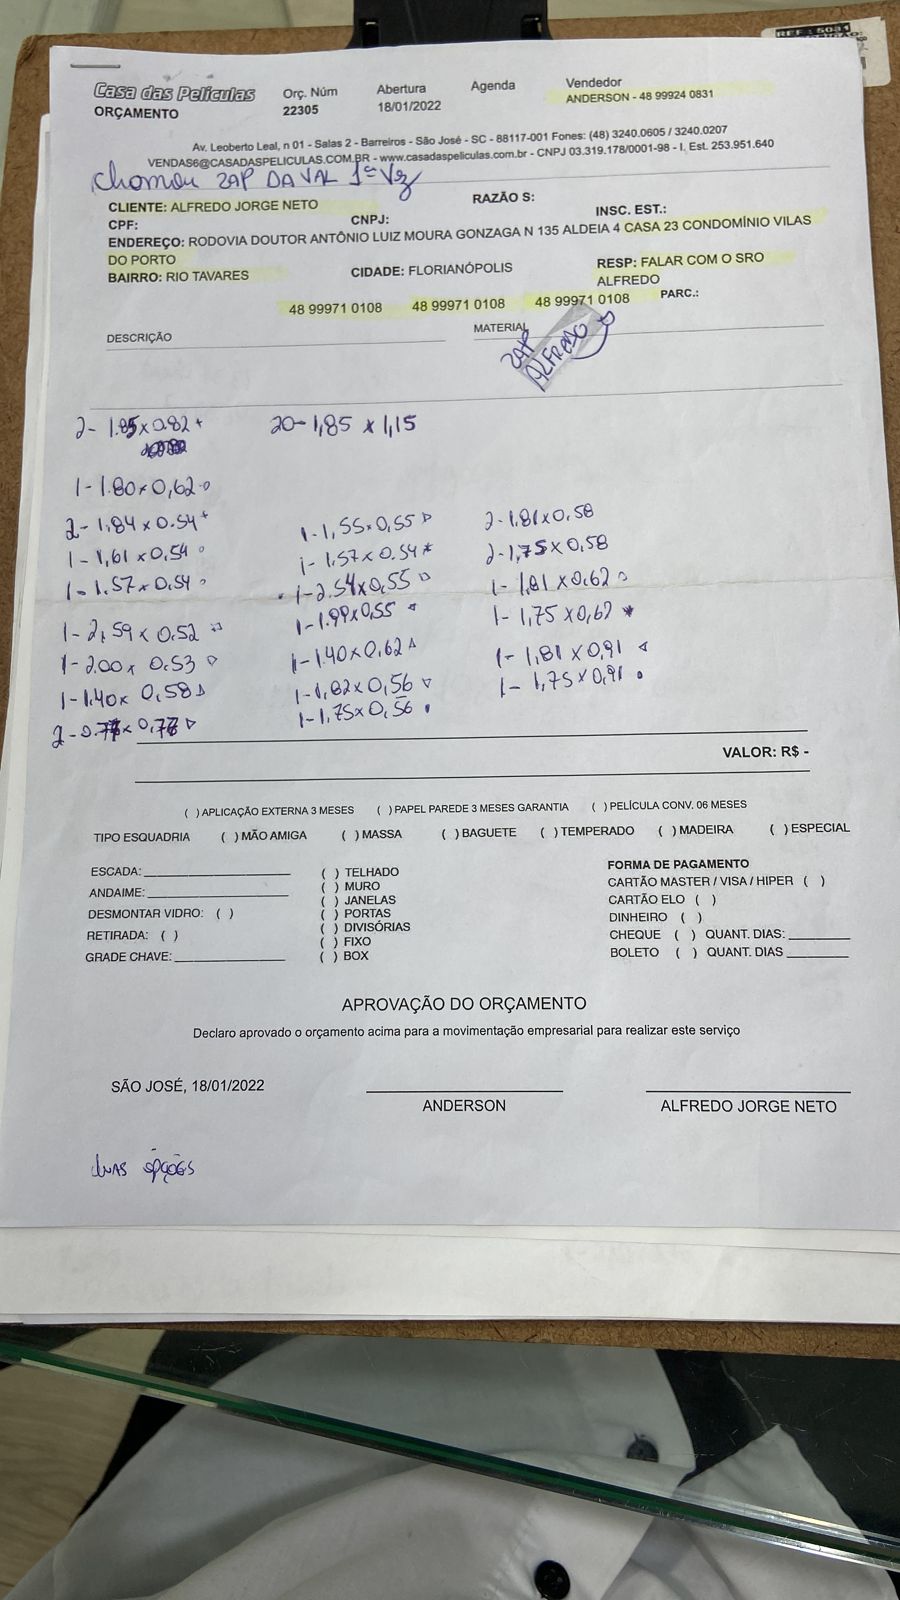 REF : 5031
Casa das Películas
ORÇAMENTO
Orç. Núm
22305
Abertura
18/01/2022
Agenda
Vendedor
ANDERSON - 48 99924 0831
Av. Leoberto Leal, n 01 - Salas 2 - Barreiros - São José - SC - 88117-001 Fones: (48) 3240.0605 / 3240.0207
VENDAS6@CASADASPELICULAS.COM.BR - www.casadaspeliculas.com.br - CNPJ 03.319.178/0001-98 - I. Est. 253.951.640
Chamou ZAP DA VAL 1ª Vez
CLIENTE: ALFREDO JORGE NETO
RAZÃO S:
CPF:
CNPJ:
INSC. EST.:
ENDEREÇO: RODOVIA DOUTOR ANTÔNIO LUIZ MOURA GONZAGA N 135 ALDEIA 4 CASA 23 CONDOMÍNIO VILAS
DO PORTO
BAIRRO: RIO TAVARES
CIDADE: FLORIANÓPOLIS
RESP: FALAR COM O SRO
ALFREDO
48 99971 0108 48 99971 0108 48 99971 0108 PARC.:
DESCRIÇÃO
MATERIAL
ZAP
ALFREDO
2- 1.85x0.82
20-1,85 x 1,15
1-1.80x0,62
2-1,84 x 0.54
1-1,61 x0.54
1-1.57x0.54
1-2,59 x 0.52
1-2.00x 0.53
1-1.40x 0,58
2-0.77x0,77
1-1,55x0,55
1-1.57x0.54
1-2.54x0,55
1-1.99x0.55
1-1.40x0,62
1-1,82x0,56
1-1.75x0,56
2-1.81x0,58
2-1,75x0,58
1-1,81x0.62
1-1,75x0,62
1-1,81x0,91
1-1,75x0,91
VALOR: R$ -
( ) APLICAÇÃO EXTERNA 3 MESES ( ) PAPEL PAREDE 3 MESES GARANTIA ( ) PELÍCULA CONV. 06 MESES
TIPO ESQUADRIA ( ) MÃO AMIGA ( ) MASSA ( ) BAGUETE ( ) TEMPERADO ( ) MADEIRA ( ) ESPECIAL
ESCADA:
ANDAIME:
DESMONTAR VIDRO: ( )
RETIRADA: ( )
GRADE CHAVE:
( ) TELHADO
( ) MURO
( ) JANELAS
( ) PORTAS
( ) DIVISÓRIAS
( ) FIXO
( ) BOX
FORMA DE PAGAMENTO
CARTÃO MASTER / VISA / HIPER ( )
CARTÃO ELO ( )
DINHEIRO ( )
CHEQUE ( ) QUANT. DIAS:
BOLETO ( ) QUANT. DIAS
APROVAÇÃO DO ORÇAMENTO
Declaro aprovado o orçamento acima para a movimentação empresarial para realizar este serviço
SÃO JOSÉ, 18/01/2022
ANDERSON
ALFREDO JORGE NETO
duas opções